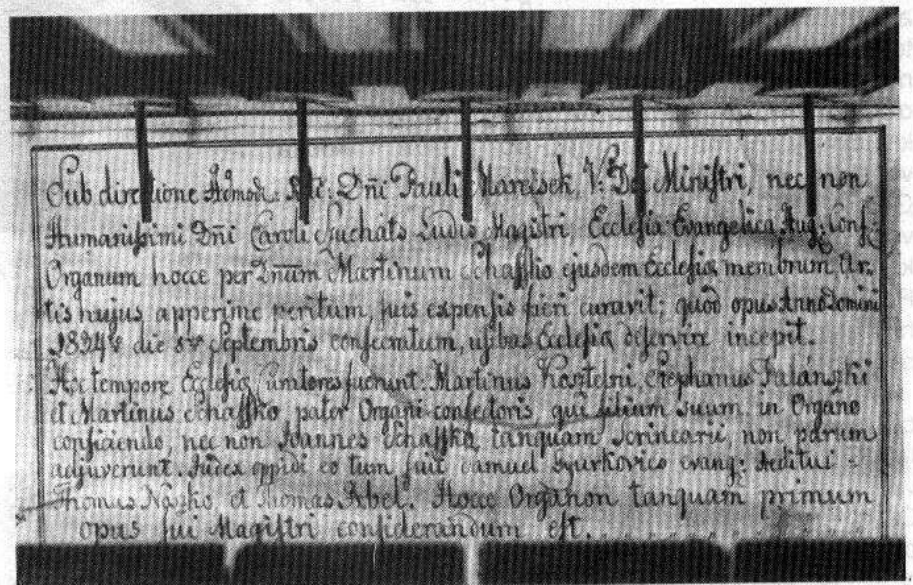 Sub directione Admod: Rdi: Dn̄i Pauli Mareček, V: Dei Ministri, nec non
Humanissimi Dn̄i Caroli Ludis Magistri, Ecclesia Evangelica Aug: Conf:
Organum hocce per Dnūm Martinum Schaffko ejusdem Ecclesiæ membrum, Ar-
tis hujus apperime peritum, suis expensis fieri curavit; quod opus Anno Domini
die 8va Septembris consecratum, usibus Ecclesiæ deservire incepit.
Hoc tempore Ecclesiæ Curatores fuerunt: Martinus Stephanus
et Martinus Schaffko pater Organi confectoris qui filium suum in Organo
conficiendo, nec non Joannes Schaffko tanquam Scrinearii, non parum
adjuverunt. Judex oppidi eo tum fuit Samuel Gyurkovics evang: Aeditui =
Thomas et Thomas Abel. Hocce Organon tanquam primum
opus sui Magistri considerandum est.